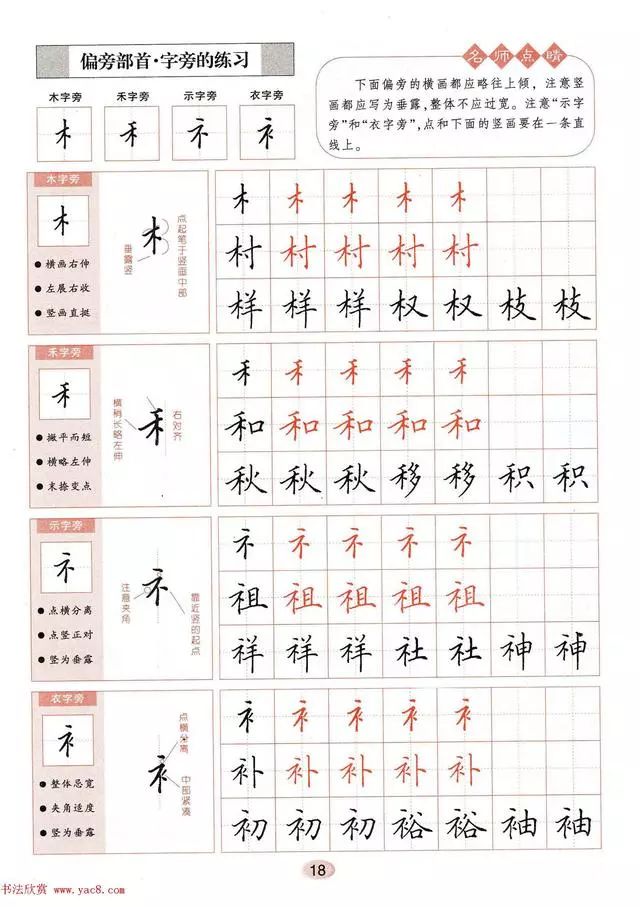 偏旁部首·字旁的练习
名师点睛
下面偏旁的横画都应略往上倾，注意竖
画都应写为垂露,整体不应过宽。注意“示字
旁”和“衣字旁”,点和下面的竖画要在一条直
线上。
木字旁 禾字旁 示字旁 衣字旁
木 禾 礻 衤
木字旁
木
横画右伸
左展右收
竖画直挺
点起笔于竖画中部
垂露竖
木 木 木 木 木
村 村 村 村 村
样 样 样 权 权 枝 枝
禾字旁
禾
撇平而短
横略左伸
末捺变点
横稍长略左伸
右对齐
禾 禾 禾 禾 禾
和 和 和 和 和
秋 秋 秋 移 移 积 积
示字旁
礻
点横分离
点竖正对
竖为垂露
注意夹角
靠近竖的起点
礻 礻 礻 礻 礻
祖 祖 祖 祖 祖
祥 祥 祥 社 社 神 神
衣字旁
衤
整体忌宽
夹角适度
竖为垂露
点横分离
中部紧凑
衤 衤 衤 衤 衤
补 补 补 补 补
初 初 初 裕 裕 袖 袖
18
书法欣赏
www.yac8.com